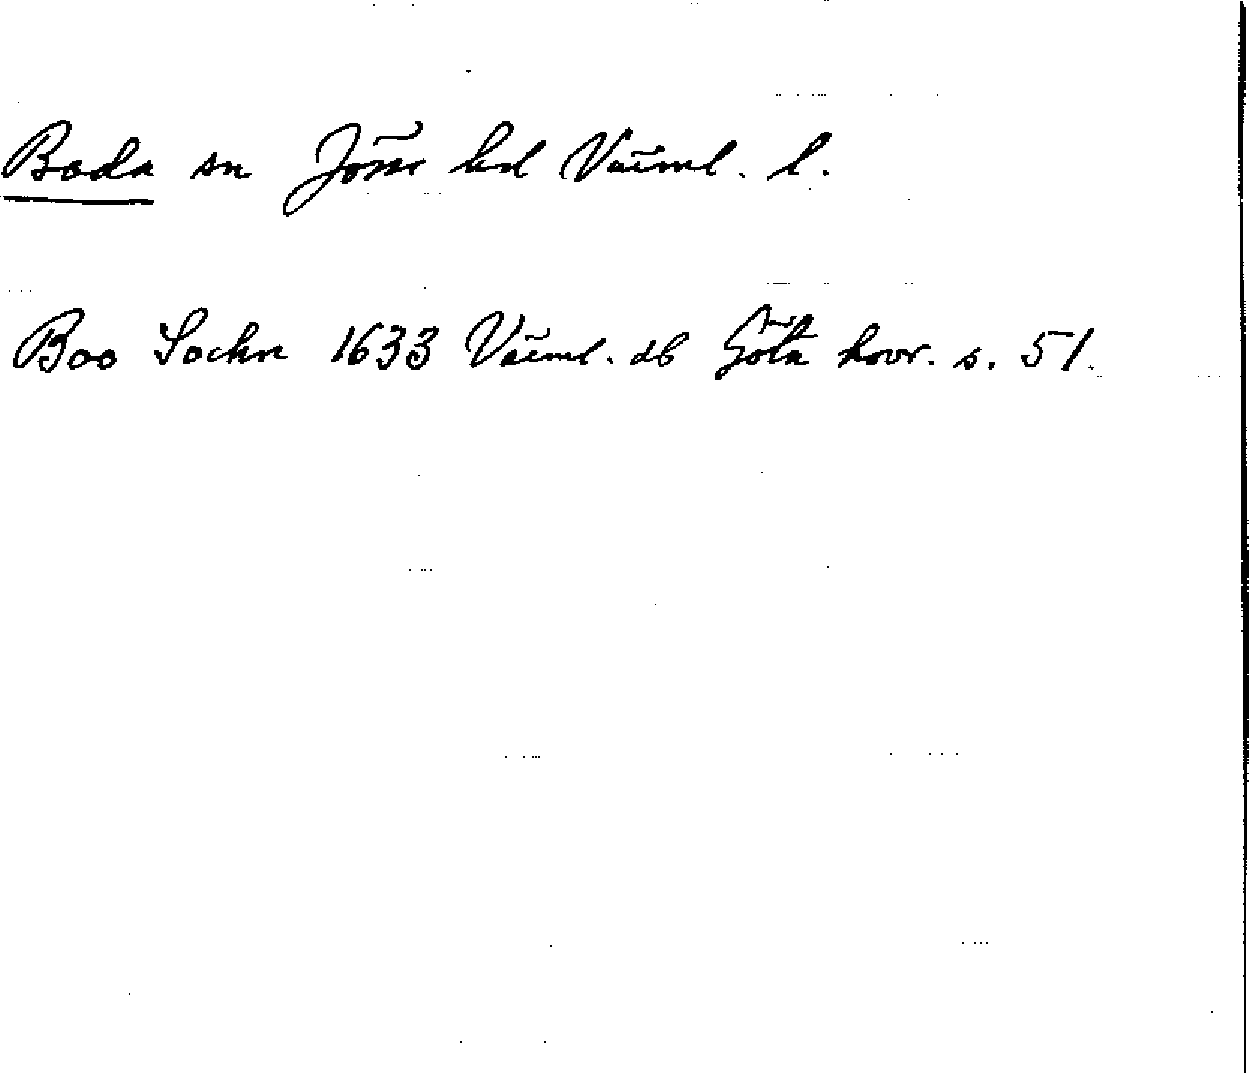 Boda sn Jösse hd Värml. l.
Boo Sochn 1633 Värml. db Göta hovr. s. 51.